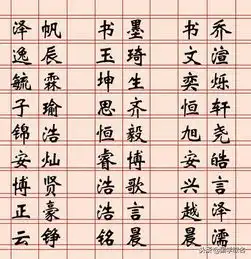 泽帆 书墨 书乔
逸辰 玉琦 文渲
毓霖 坤生 奕烁
子瑜 思齐 恒轩
锦浩 恒毅 旭尧
安灿 睿博 安皓
博贤 浩歌 兴言
正豪 浩言 越泽
云铮 铭晨 晨濡
头条